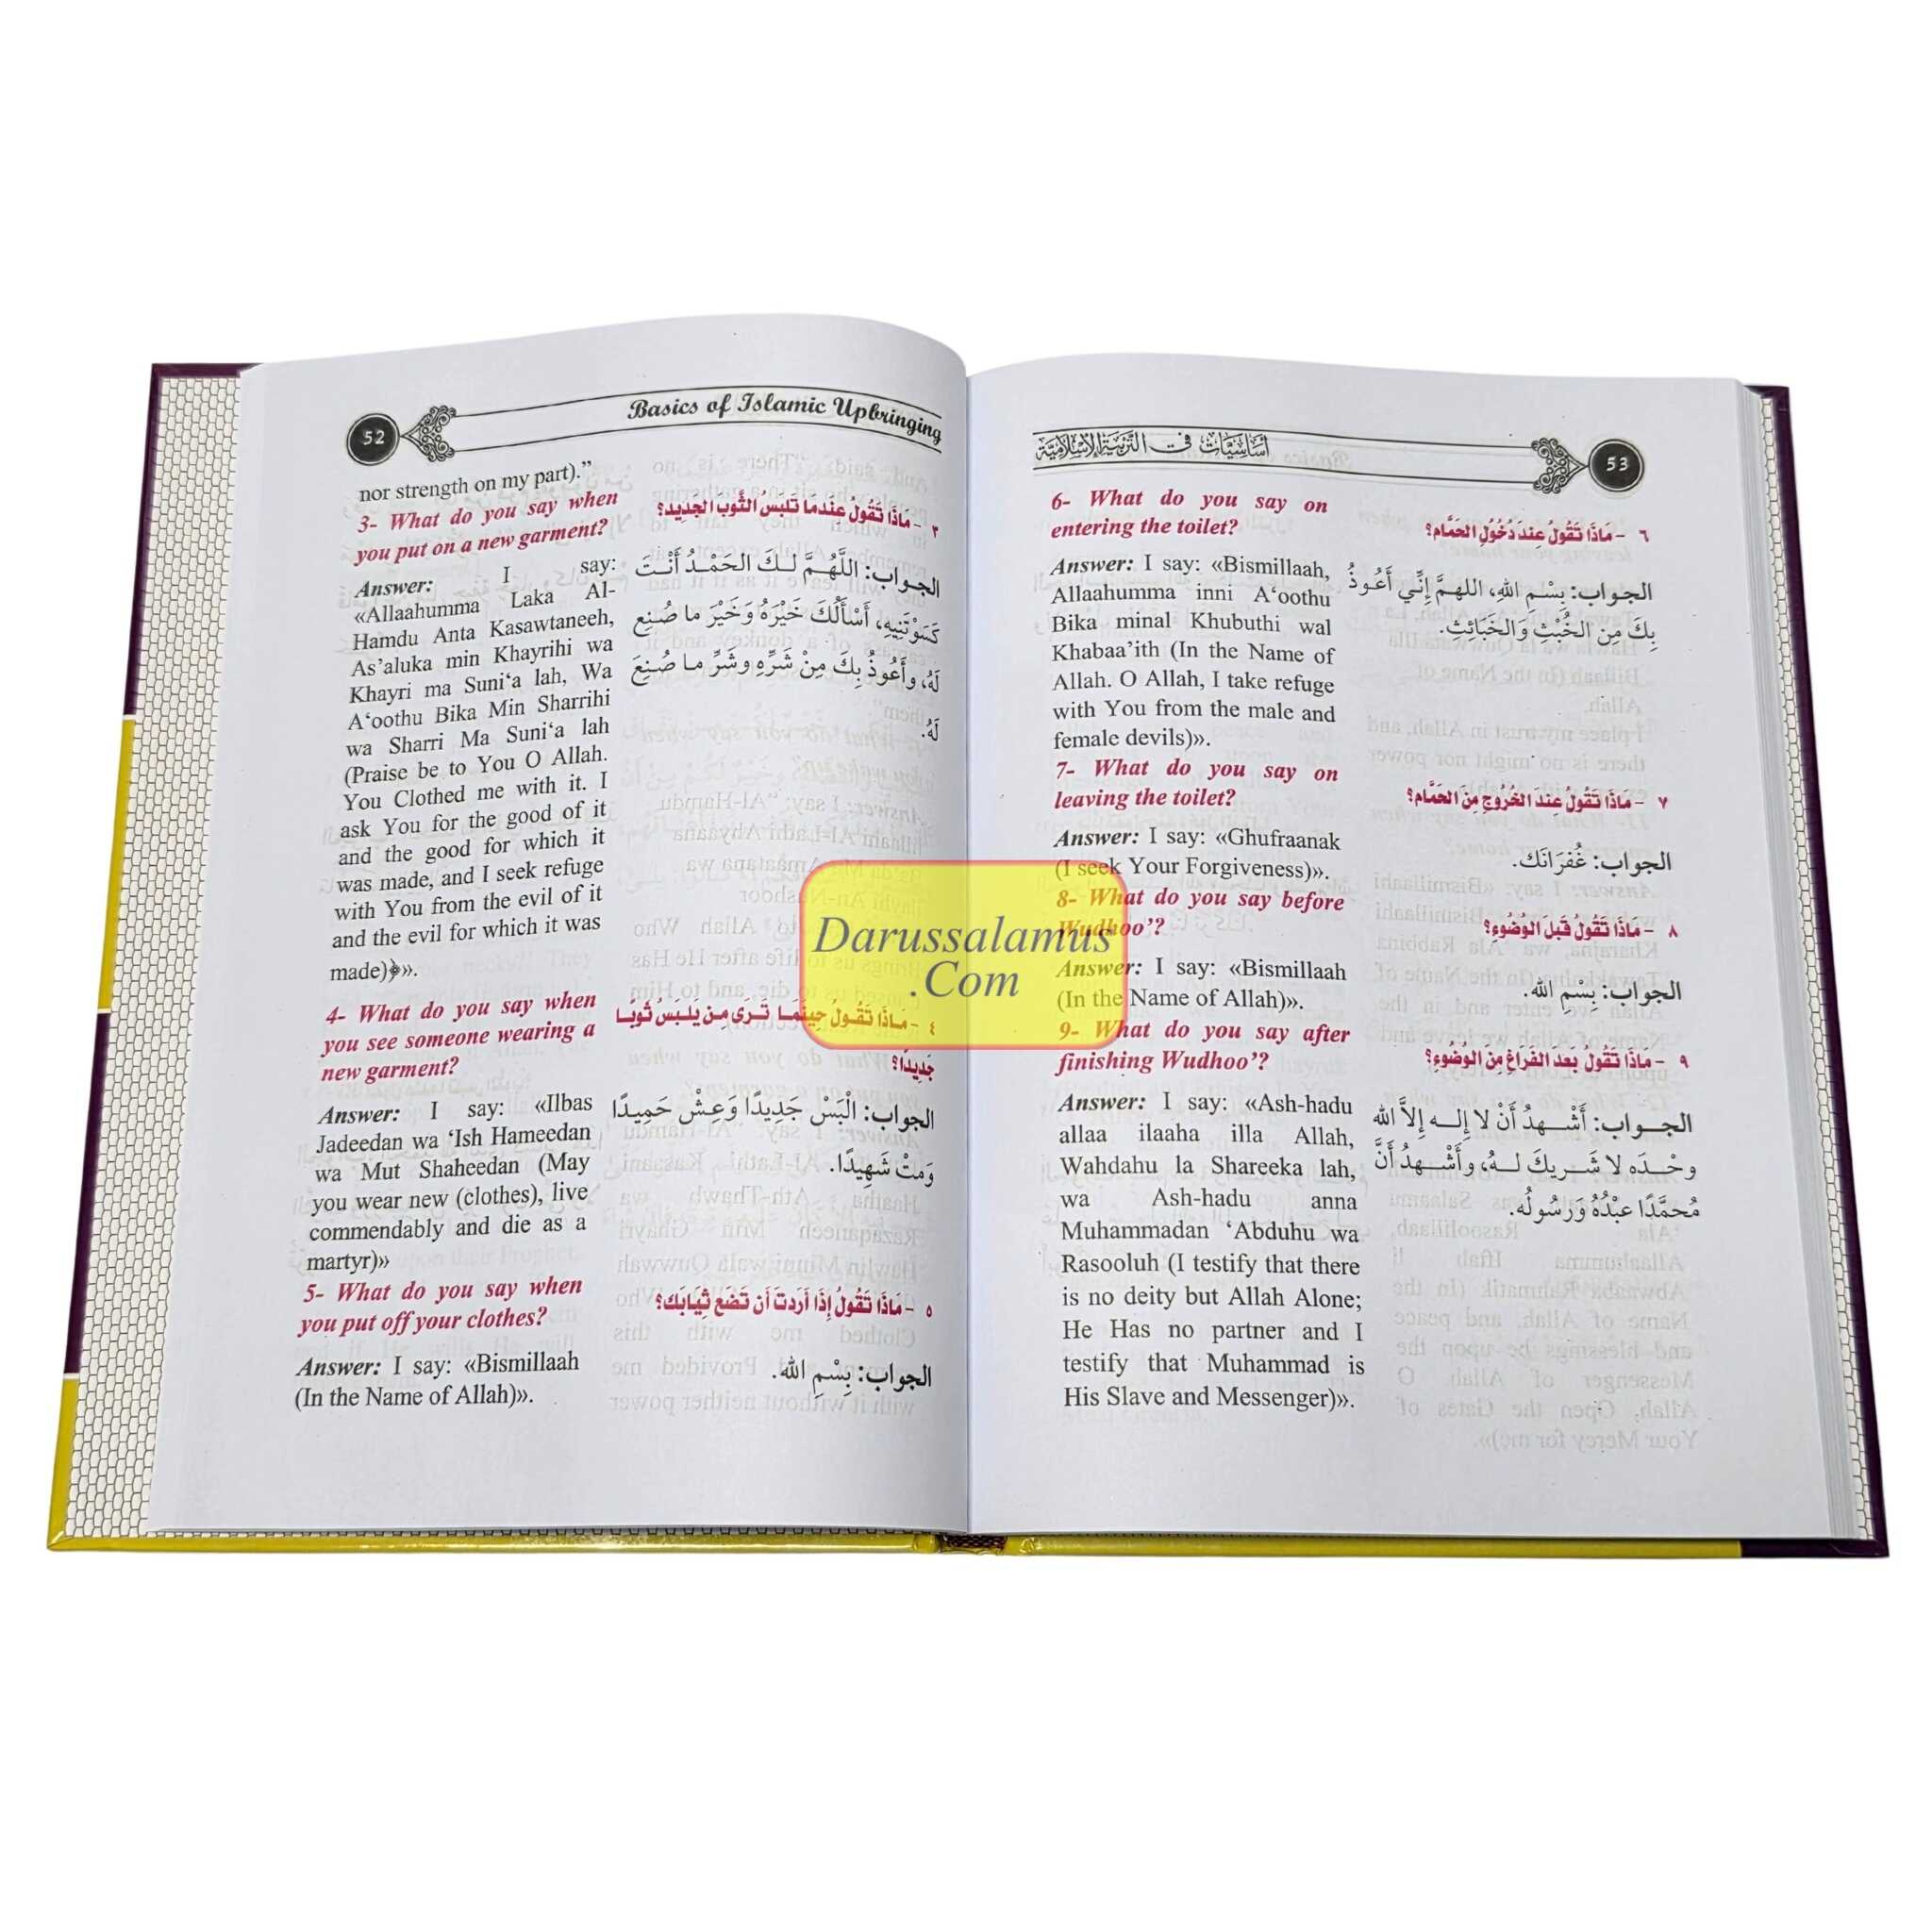 52
Basics of Islamic Upbringing
nor strength on my part)."
3- What do you say when
you put on a new garment?
Answer: I say:
«Allaahumma Laka Al-
Hamdu Anta Kasawtaneeh,
As'aluka min Khayrihi wa
Khayri ma Suni‘a lah, Wa
A‘oothu Bika Min Sharrihi
wa Sharri Ma Suni‘a lah
(Praise be to You O Allah.
You Clothed me with it. I
ask You for the good of it
and the good for which it
was made, and I seek refuge
with You from the evil of it
and the evil for which it was
made)».
4- What do you say when
you see someone wearing a
new garment?
Answer: I say: «Ilbas
Jadeedan wa ‘Ish Hameedan
wa Mut Shaheedan (May
you wear new (clothes), live
commendably and die as a
martyr)»
5- What do you say when
you put off your clothes?
Answer: I say: «Bismillaah
(In the Name of Allah)».
٣ - مَاذَا تَقُولُ عِنْدَمَا تَلبَسُ الثَّوبَ الجَدِيد؟
الجـواب: اللَّهُـمَّ لَـكَ الحَمْـدُ أَنْـتَ
كَسَوْتَنِيهِ، أَسْأَلُكَ خَيْرَهُ وَخَيْرَ ما صُنِع
لَهُ، وأَعُوذُ بِكَ مِنْ شَرِّهِ وشَرِّ ما صُنِعَ
لَهُ.
٤ - مَـاذَا تَقُـولُ حِينَمَـا تَـرَى مِـن يَلبَسُ ثَوبًـا
جَدِيدًا؟
الجواب: الْبَسْ جَدِيدًا وَعِشْ حَمِيـدًا
وَمتْ شَهِيدًا.
٥ - مَاذَا تَقُولُ إِذَا أَرَدتَ أَن تَضَع ثِيَابَك؟
الجواب: بِسْمِ الله.
أساسيات في التربية الإسلامية
53
6- What do you say on
entering the toilet?
Answer: I say: «Bismillaah,
Allaahumma inni A‘oothu
Bika minal Khubuthi wal
Khabaa'ith (In the Name of
Allah. O Allah, I take refuge
with You from the male and
female devils)».
7- What do you say on
leaving the toilet?
Answer: I say: «Ghufraanak
(I seek Your Forgiveness)».
8- What do you say before
Wudhoo'?
Answer: I say: «Bismillaah
(In the Name of Allah)».
9- What do you say after
finishing Wudhoo'?
Answer: I say: «Ash-hadu
allaa ilaaha illa Allah,
Wahdahu la Shareeka lah,
wa Ash-hadu anna
Muhammadan ‘Abduhu wa
Rasooluh (I testify that there
is no deity but Allah Alone;
He Has no partner and I
testify that Muhammad is
His Slave and Messenger)».
٦ - مَاذَا تَقُولُ عِندَ دُخُولِ الحَمَّام؟
الجـواب: بِسْمِ اللهِ، اللهمَّ إِنِّي أَعُـوذُ
بِكَ مِن الخُبْثِ وَالخَبَائِثِ.
٧ - مَاذَا تَقُولُ عِندَ الخُرُوجِ مِنَ الحَمَّام؟
الجواب: غُفرَانَك.
٨ - مَاذَا تَقُولُ قَبلَ الوُضُوءِ؟
الجواب: بِسْمِ الله.
٩ - مَاذَا تَقُولُ بَعدَ الفَرَاغِ مِنَ الوُضُوءِ؟
الجــواب: أَشْــهدُ أَنْ لا إِلــه إِلاَّ الله
وحْـدَه لا شَـرِيكَ لـهُ، وأَشْـهدُ أَنَّ
مُحمَّدًا عبْدُهُ وَرَسُولُه.
Darussalamus
.Com